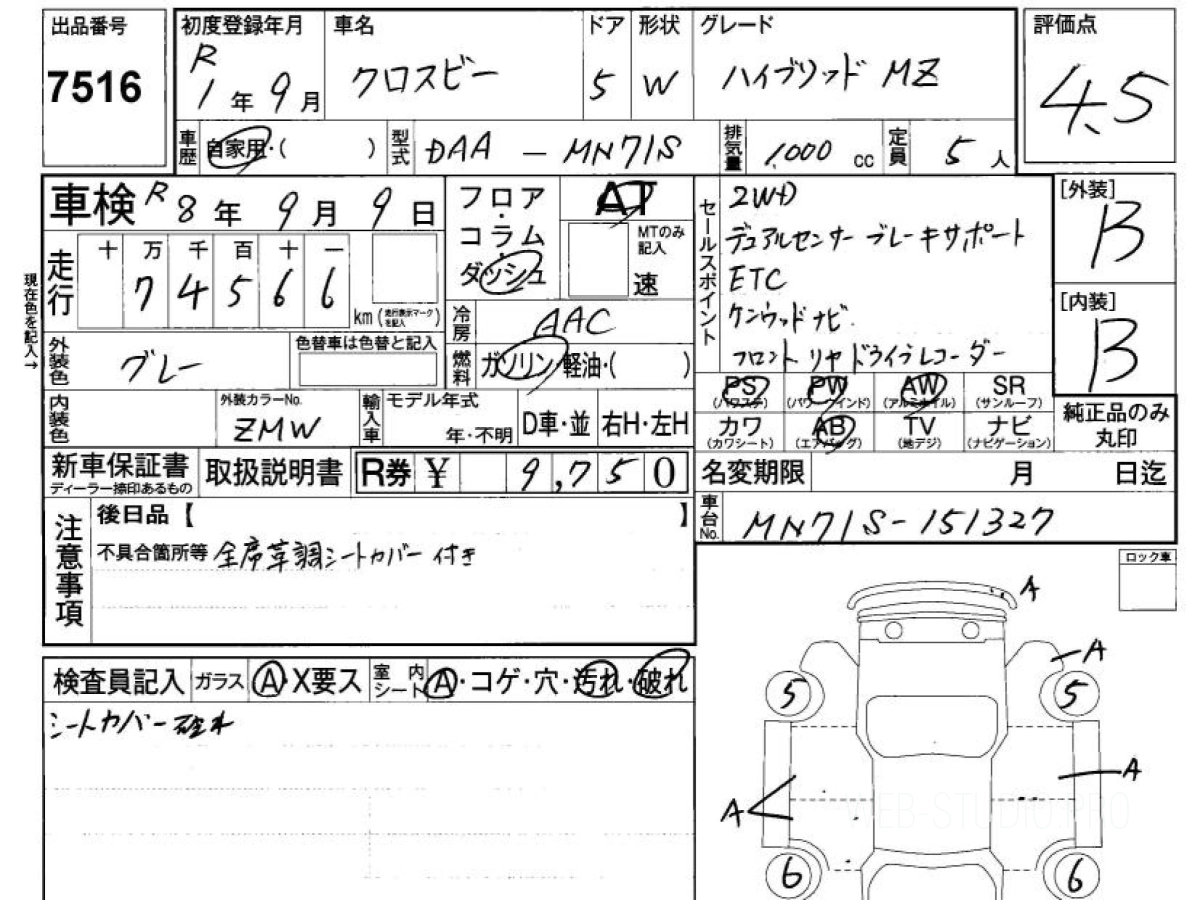 出品番号
7516
初度登録年月
R
1年 9月
車名
クロスビー
ドア
5
形状
W
グレード
ハイブリッド MZ
評価点
4.5
車歴
自家用・( )
型式
DAA - MN71S
排気量
1,000 cc
定員
5人
車検 R8年 9月 9日
フロア・コラム・ダッシュ
AT
MTのみ記入
速
セールスポイント
2WD
デュアルセンサーブレーキサポート
ETC
ケンウッドナビ
フロントリヤドライブレコーダー
[外装]
B
[内装]
B
現在色を記入→
走行
十 万 千 百 十 一
7 4 5 6 6
km(走行表示マークを記入)
冷房
AAC
燃料
ガソリン・軽油・( )
外装色
グレー
色替車は色替と記入
内装色
外装カラーNo.
ZMW
輸入車
モデル年式
年・不明
D車・並
右H・左H
PS
(パワステ)
PW
(パワーウインド)
AW
(アルミホイル)
SR
(サンルーフ)
カワ
(カワシート)
AB
(エアバッグ)
TV
(地デジ)
ナビ
(ナビゲーション)
純正品のみ
丸印
新車保証書
ディーラー捺印あるもの
取扱説明書
R券 ¥ 9,750
名変期限 月 日迄
車台No.
MN71S-151327
注意事項
後日品【 】
不具合箇所等 全席革調シートカバー付き
ロック車
検査員記入
ガラス
A・X要ス
室内
シート
A・コゲ・穴・汚れ・破れ
シートカバー破れ
A
A
5
5
A
A
WEB-STUDIO.PRO
6
6